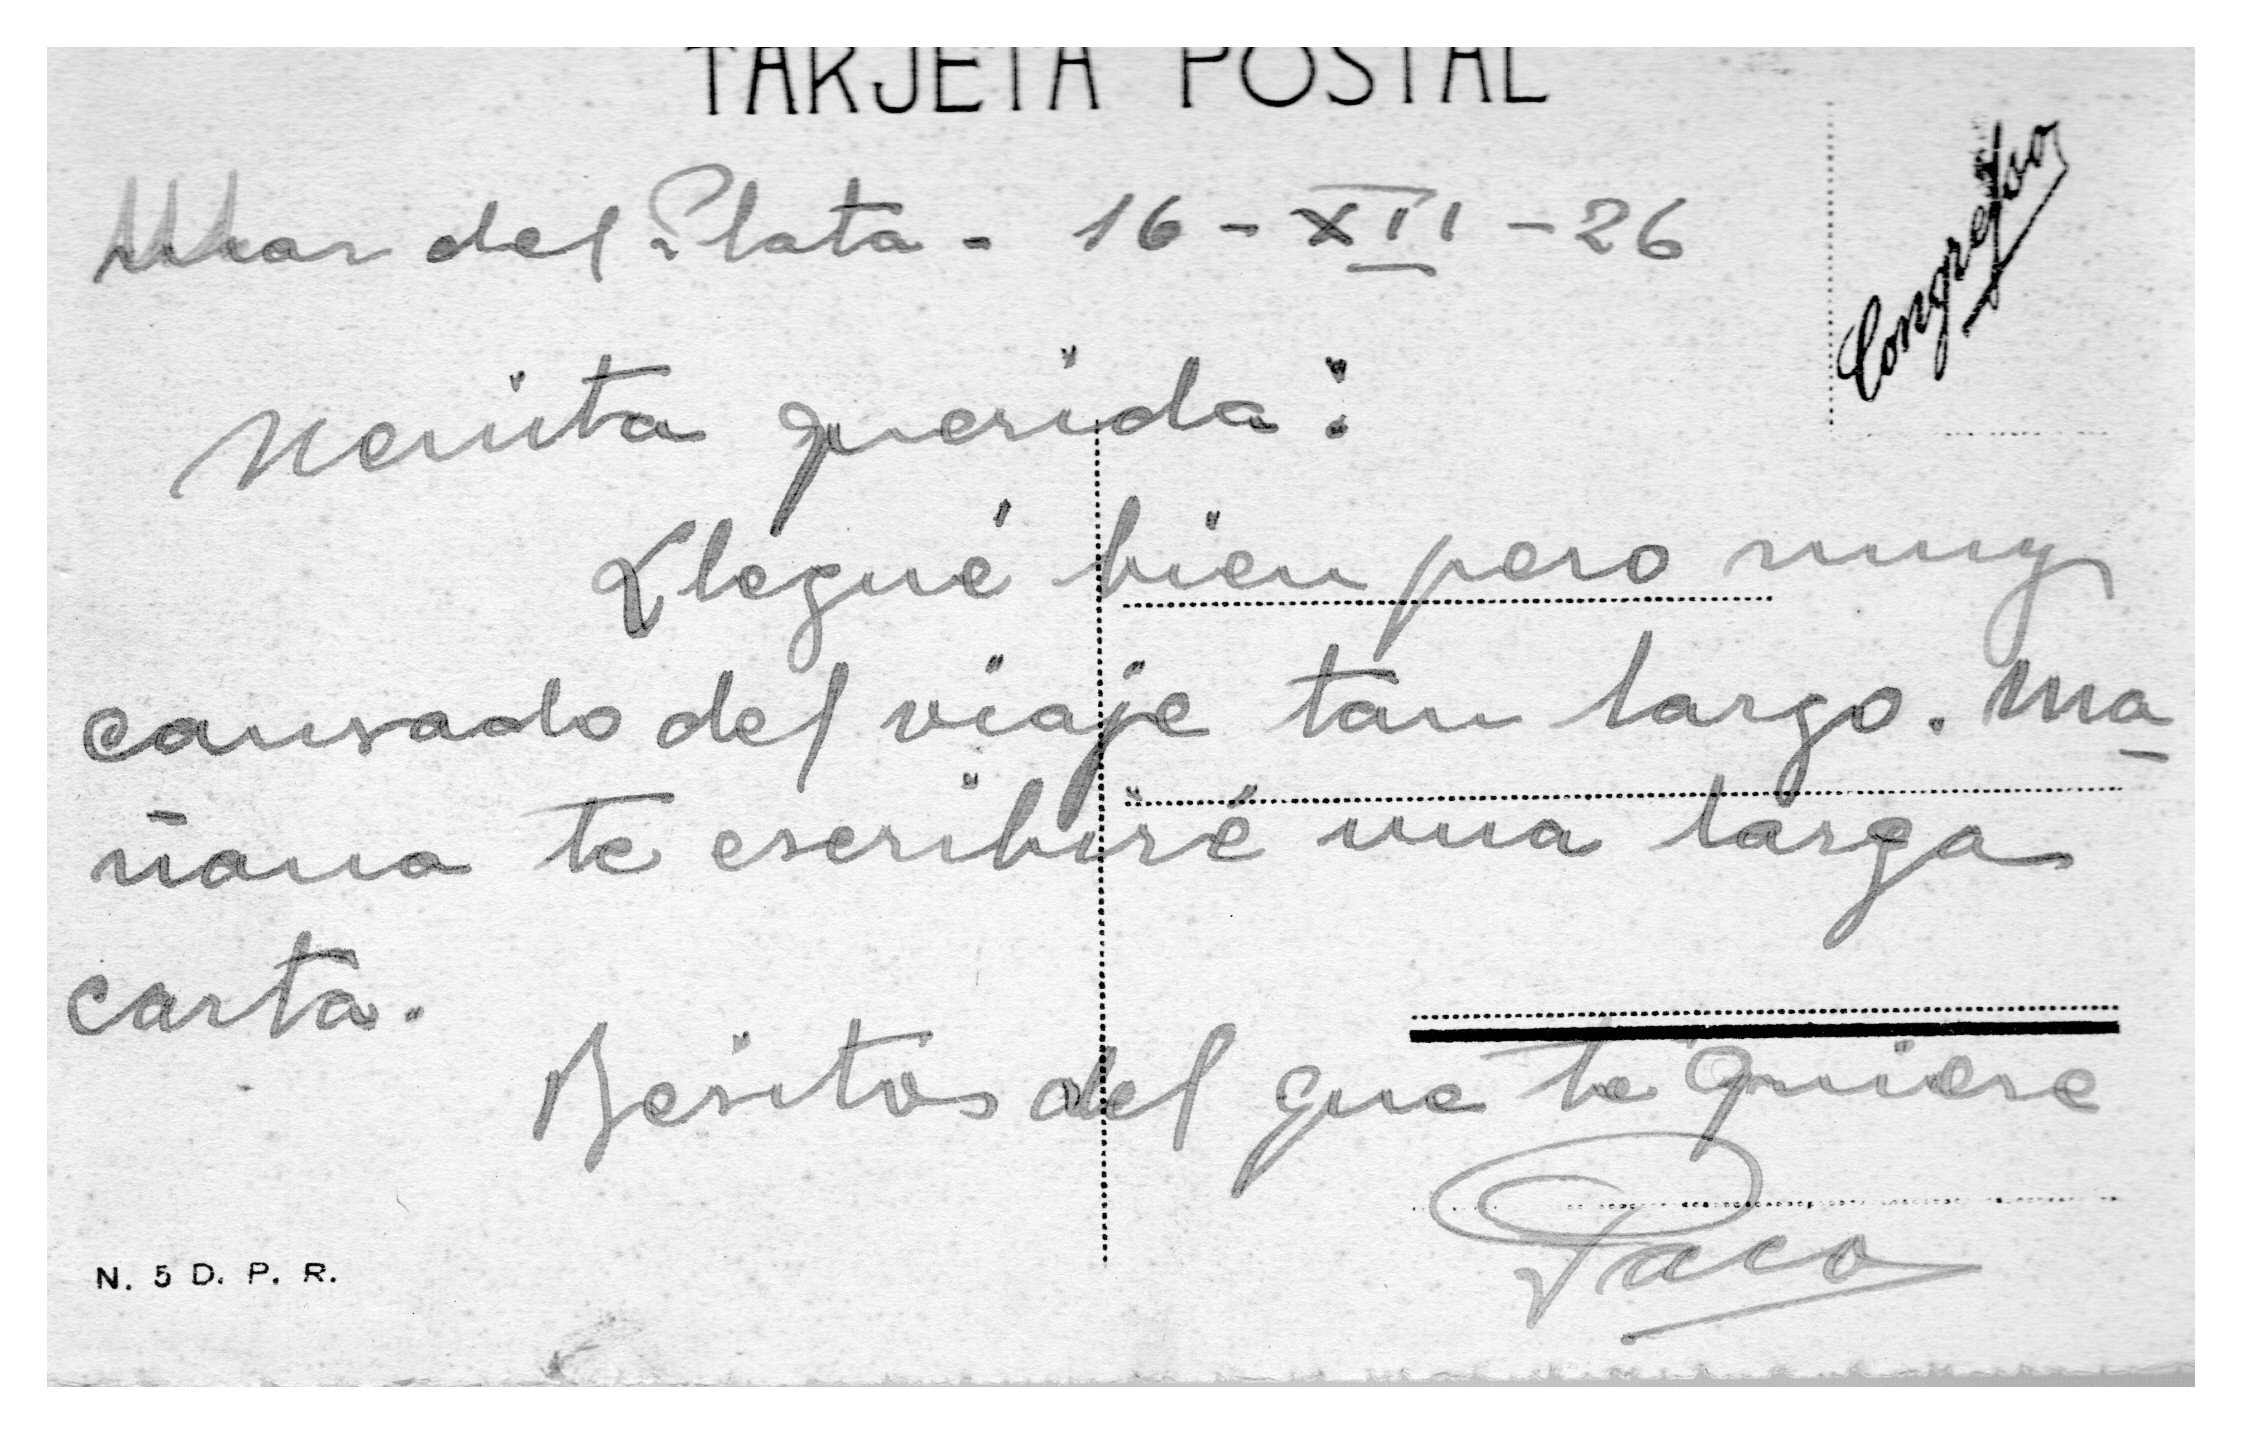 TARJETA POSTAL
Mar del Plata - 16 - XII - 26
Congreso
Nenita querida:
Llegué bien pero muy
cansado del viaje tan largo. Ma-
ñana te escribiré una larga
carta.
Besitos del que te quiere
Paco
N. 5 D. P. R.